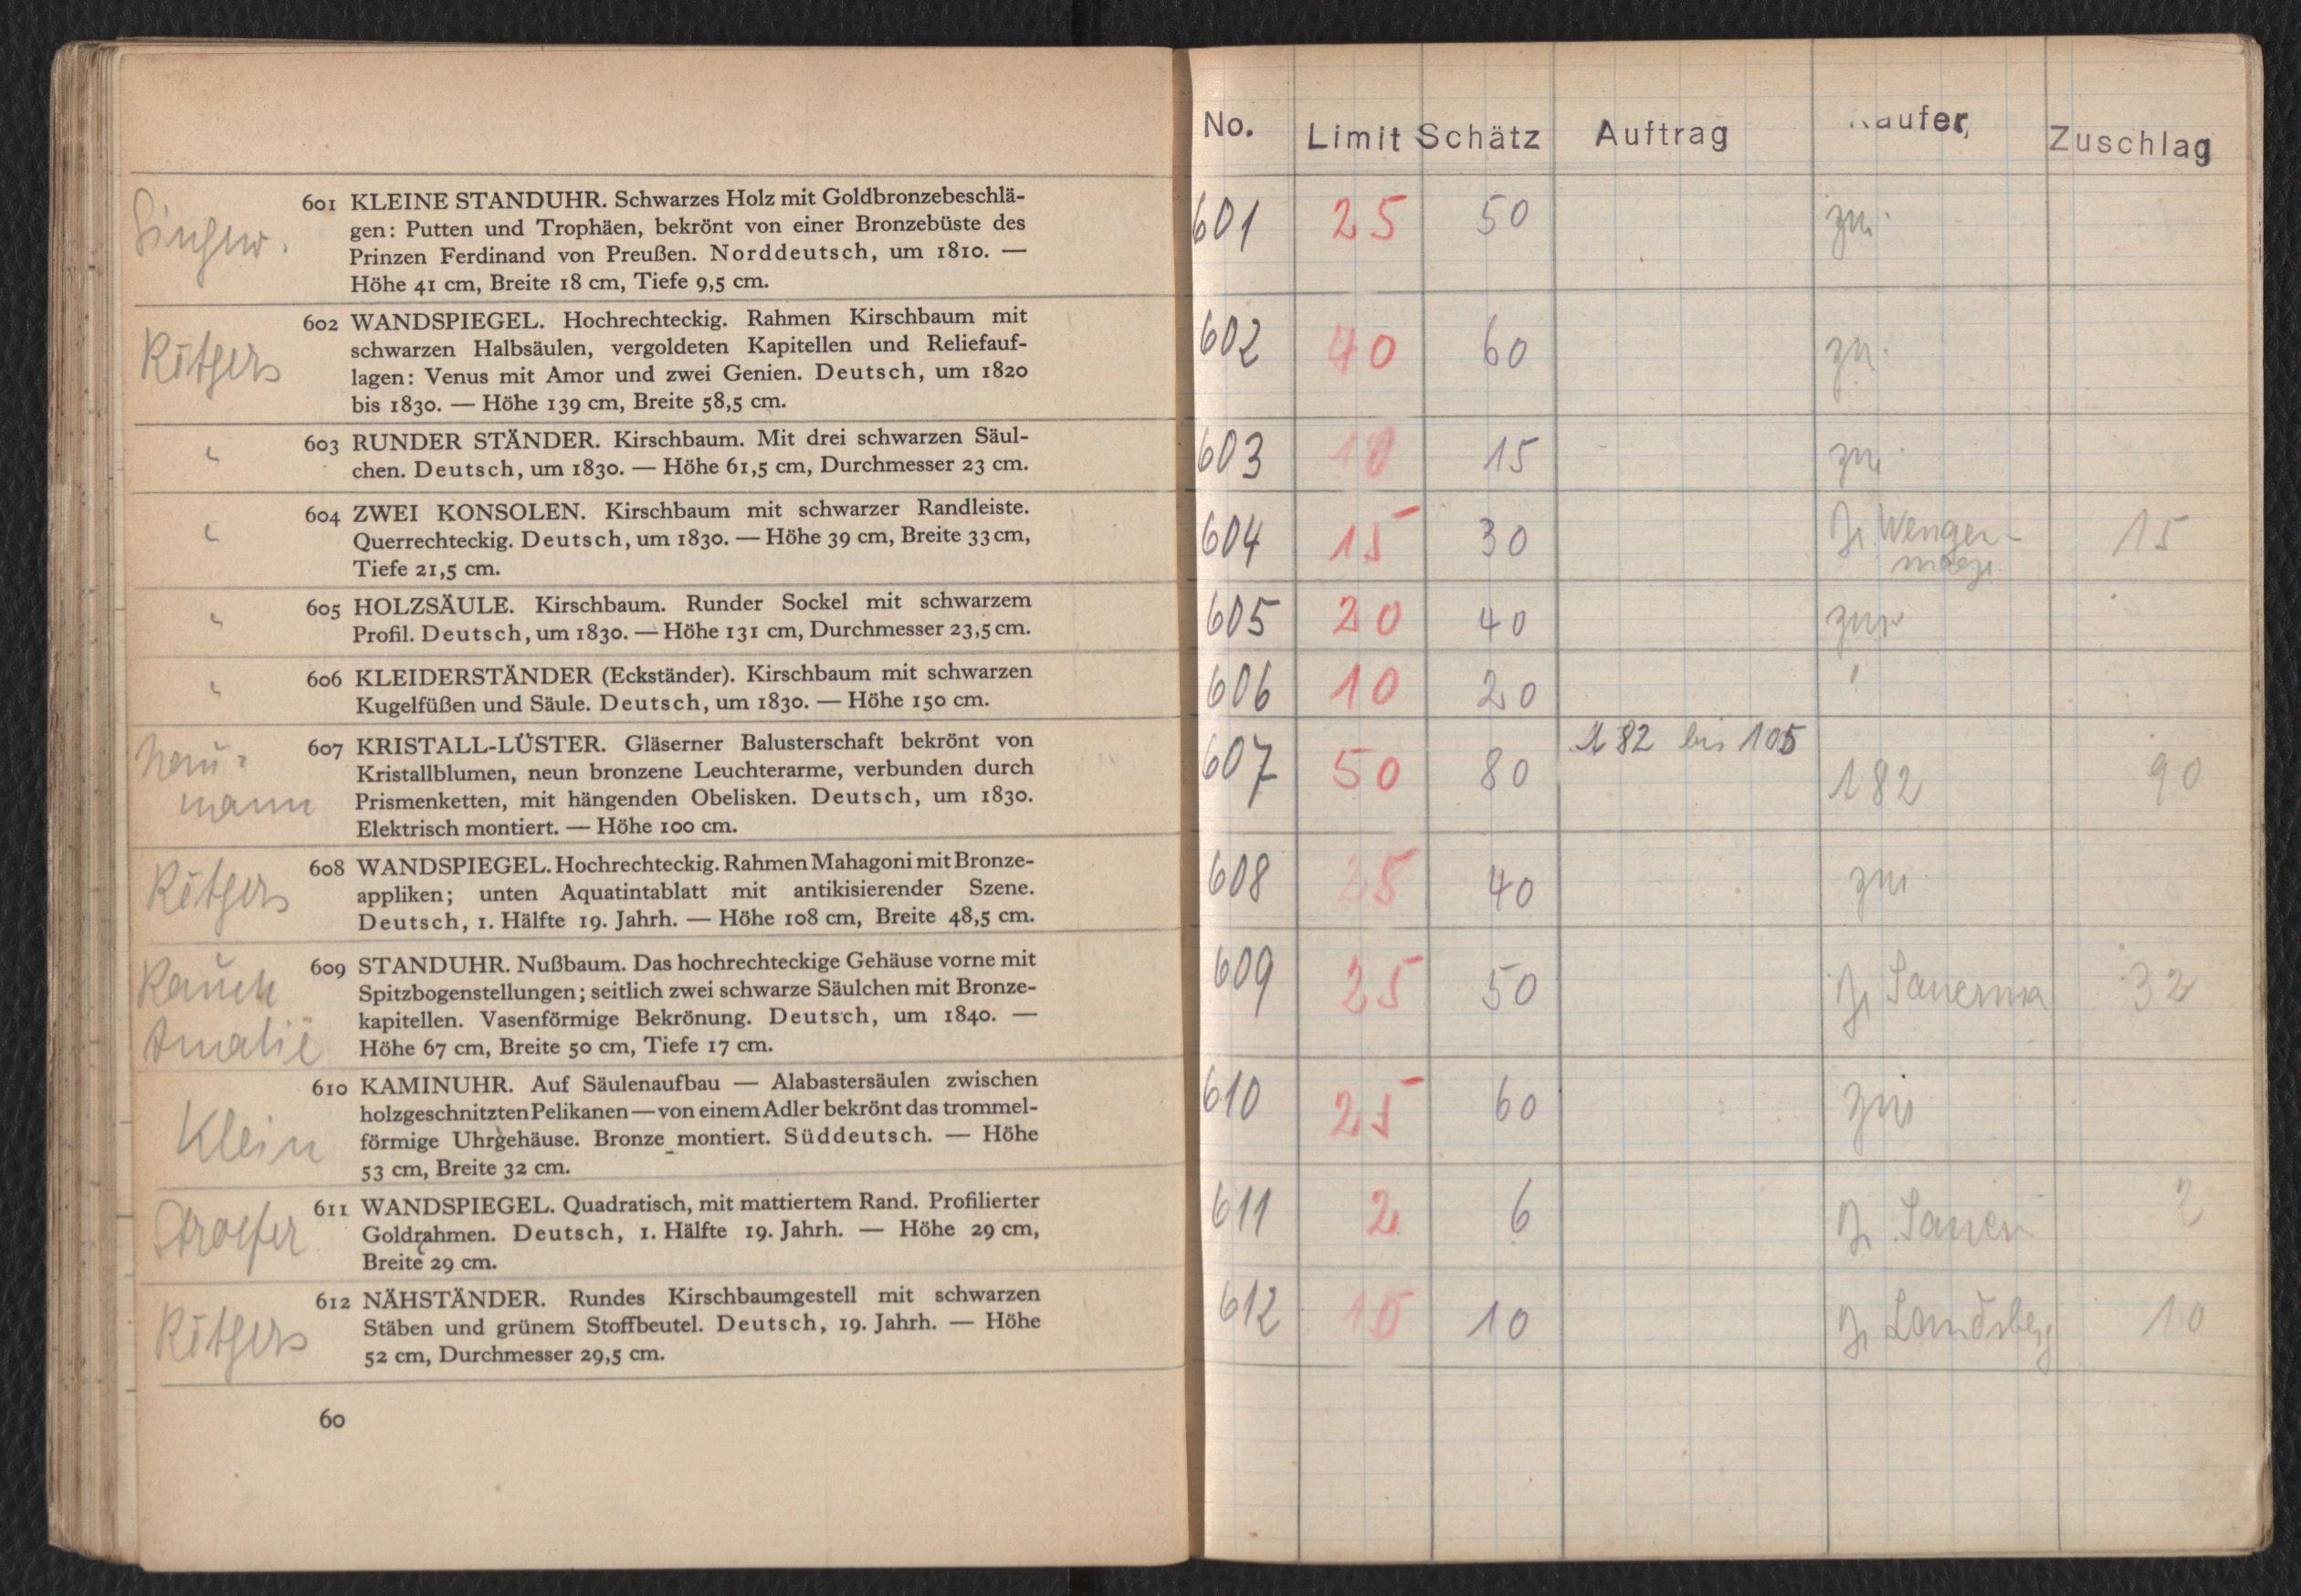 601 KLEINE STANDUHR. Schwarzes Holz mit Goldbronzebeschlä-
gen: Putten und Trophäen, bekrönt von einer Bronzebüste des
Prinzen Ferdinand von Preußen. Norddeutsch, um 1810. —
Höhe 41 cm, Breite 18 cm, Tiefe 9,5 cm.
Rötgers
602 WANDSPIEGEL. Hochrechteckig. Rahmen Kirschbaum mit
schwarzen Halbsäulen, vergoldeten Kapitellen und Reliefauf-
lagen: Venus mit Amor und zwei Genien. Deutsch, um 1820
bis 1830. — Höhe 139 cm, Breite 58,5 cm.
603 RUNDER STÄNDER. Kirschbaum. Mit drei schwarzen Säul-
chen. Deutsch, um 1830. — Höhe 61,5 cm, Durchmesser 23 cm.
604 ZWEI KONSOLEN. Kirschbaum mit schwarzer Randleiste.
Querrechteckig. Deutsch, um 1830. — Höhe 39 cm, Breite 33 cm,
Tiefe 21,5 cm.
605 HOLZSÄULE. Kirschbaum. Runder Sockel mit schwarzem
Profil. Deutsch, um 1830. — Höhe 131 cm, Durchmesser 23,5 cm.
606 KLEIDERSTÄNDER (Eckständer). Kirschbaum mit schwarzen
Kugelfüßen und Säule. Deutsch, um 1830. — Höhe 150 cm.
Nau-
mann
607 KRISTALL-LÜSTER. Gläserner Balusterschaft bekrönt von
Kristallblumen, neun bronzene Leuchterarme, verbunden durch
Prismenketten, mit hängenden Obelisken. Deutsch, um 1830.
Elektrisch montiert. — Höhe 100 cm.
Rötgers
608 WANDSPIEGEL. Hochrechteckig. Rahmen Mahagoni mit Bronze-
appliken; unten Aquatintablatt mit antikisierender Szene.
Deutsch, 1. Hälfte 19. Jahrh. — Höhe 108 cm, Breite 48,5 cm.
Rauch
Amalie
609 STANDUHR. Nußbaum. Das hochrechteckige Gehäuse vorne mit
Spitzbogenstellungen; seitlich zwei schwarze Säulchen mit Bronze-
kapitellen. Vasenförmige Bekrönung. Deutsch, um 1840. —
Höhe 67 cm, Breite 50 cm, Tiefe 17 cm.
Klein
610 KAMINUHR. Auf Säulenaufbau — Alabastersäulen zwischen
holzgeschnitzten Pelikanen — von einem Adler bekrönt das trommel-
förmige Uhrgehäuse. Bronze montiert. Süddeutsch. — Höhe
53 cm, Breite 32 cm.
Stroefer
611 WANDSPIEGEL. Quadratisch, mit mattiertem Rand. Profilierter
Goldrahmen. Deutsch, 1. Hälfte 19. Jahrh. — Höhe 29 cm,
Breite 29 cm.
Rötgers
612 NÄHSTÄNDER. Rundes Kirschbaumgestell mit schwarzen
Stäben und grünem Stoffbeutel. Deutsch, 19. Jahrh. — Höhe
52 cm, Durchmesser 29,5 cm.
60
No. Limit Schätz Auftrag Käufer, Zuschlag
601 25 50 zur
602 40 60 zur
603 10 15 zur
604 15 30 15
605 20 40 zur
606 10 20 "
607 50 80 182 bis 105 182 90
608 25 40 zur
609 25 50 32
610 25 60 zur
611 2 6 2
612 10 10 Landsberg 10